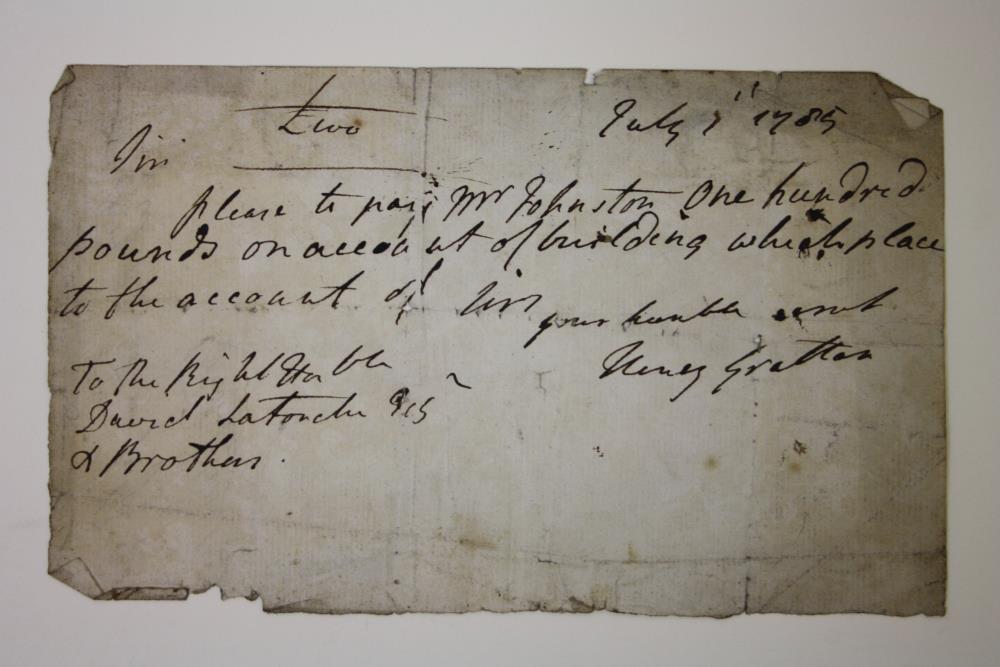 £100 July 1st 1785
Sir
please to pay Mr Johnston One hundred
pounds on account of building which place
to the account of Sir
your humble servt
To the Right Honble Henry Grattan
David Latouche Esq
& Brothers.